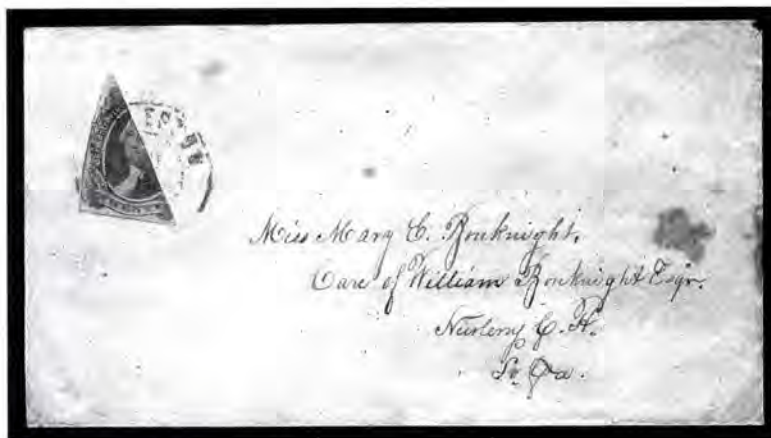 Miss Mary C. Bouknight,
Care of William Bouknight Esqr.
C. H.
So Ca.